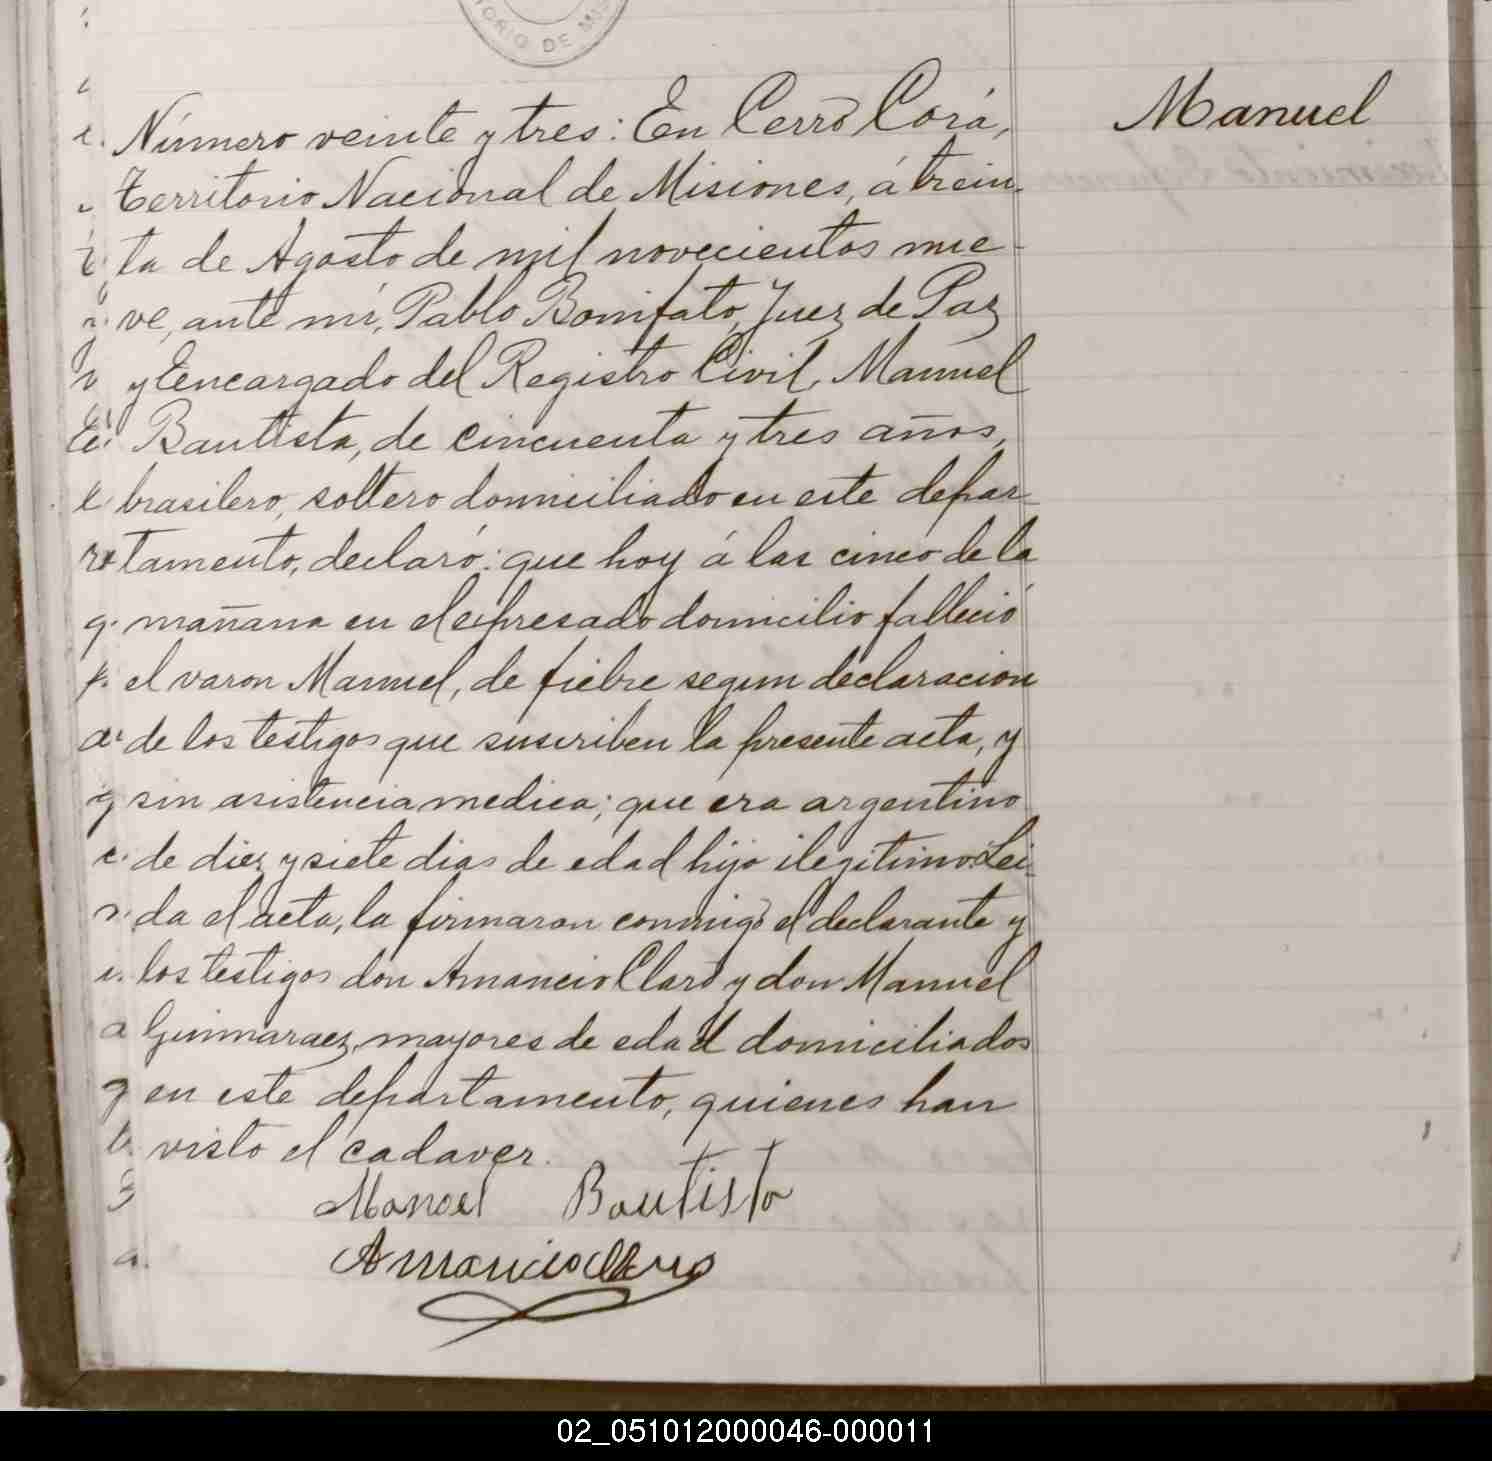 TORIO DE MIS
Número veinte y tres: En Cerro Corá,
Territorio Nacional de Misiones, á trein-
ta de Agosto de mil novecientos nue-
ve, ante mí, Pablo Bonifato, Juez de Paz
y Encargado del Registro Civil, Manuel
Bautista, de cincuenta y tres años,
brasilero, soltero domiciliado en este depar-
tamento, declaró: que hoy á las cinco de la
mañana en el expresado domicilio falleció
el varon Manuel, de fiebre segun declaracion
de los testigos que suscriben la presente acta, y
sin asistencia medica; que era argentino
de diez y siete dias de edad hijo ilegitimo. Lei-
da el acta, la firmaron conmigo el declarante y
los testigos don Amancio Claro y don Manuel
Guimaraez, mayores de edad domiciliados
en este departamento, quienes han
visto el cadaver.
Manoel Bautista
Amancio Claro
Manuel
02_051012000046-000011